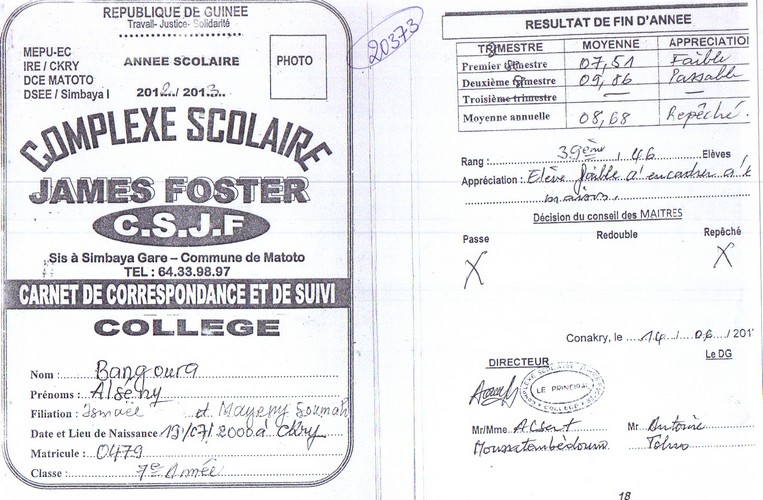 REPUBLIQUE DE GUINEE
Travail- Justice- Solidarité
MEPU-EC
IRE / CKRY
DCE MATOTO
DSEE / Simbaya I
ANNEE SCOLAIRE
2012../ 2013...
PHOTO
COMPLEXE SCOLAIRE
JAMES FOSTER
C.S.J.F
Sis à Simbaya Gare – Commune de Matoto
TEL : 64.33.98.97
CARNET DE CORRESPONDANCE ET DE SUIVI
COLLEGE
Nom : Bangoura
Prénoms : Alsény
Filiation : Ismaël et Mayeny Soumah
Date et Lieu de Naissance 19/07/2000 à Ckry
Matricule : 0479
Classe : 7e Année
20373
RESULTAT DE FIN D'ANNEE
TRIMESTRE MOYENNE APPRECIATION
Premier trimestre 07,51 Faible
Deuxième trimestre 09,86 Passable
Troisième trimestre — —
Moyenne annuelle 08,68 Repêché.
Rang : 39ème / 46 Elèves
Appréciation : Elève faible à encadrer à la
maison.
Décision du conseil des MAITRES
Passe Redouble Repêché
X X
Conakry, le 14 / 06 / 201
Le DG
DIRECTEUR
COMPLEXE SCOLAIRE JAMES FOSTER
LE PRINCIPAL
COLLEGE
Mr/Mme Albert Mr Antoine
18